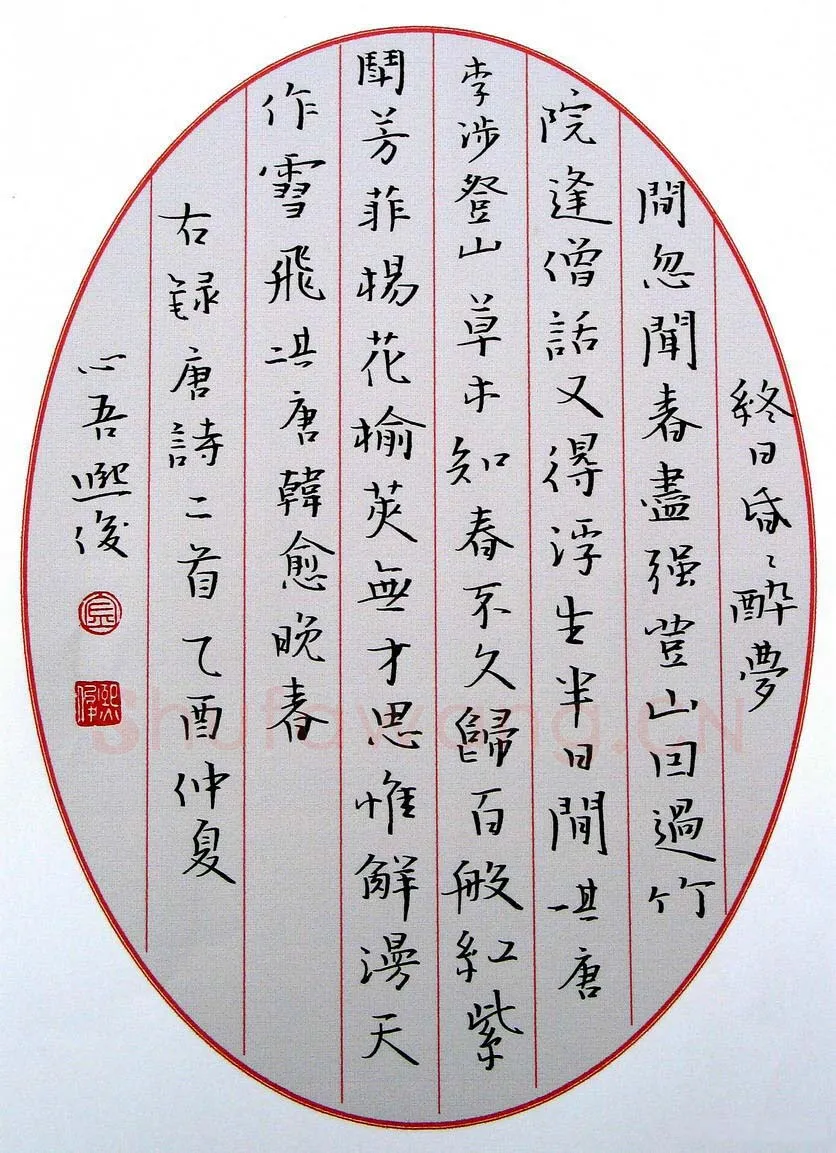 終日昏〻醉夢
間忽聞春盡强登山因過竹
院逢僧話又得浮生半日閒其一唐
李涉登山草木知春不久歸百般紅紫
鬥芳菲楊花榆莢無才思惟解漫天
作雪飛其二唐韓愈晚春
右録唐詩二首乙酉仲夏
心吾熙俊
熙俊
Shufawang.CN